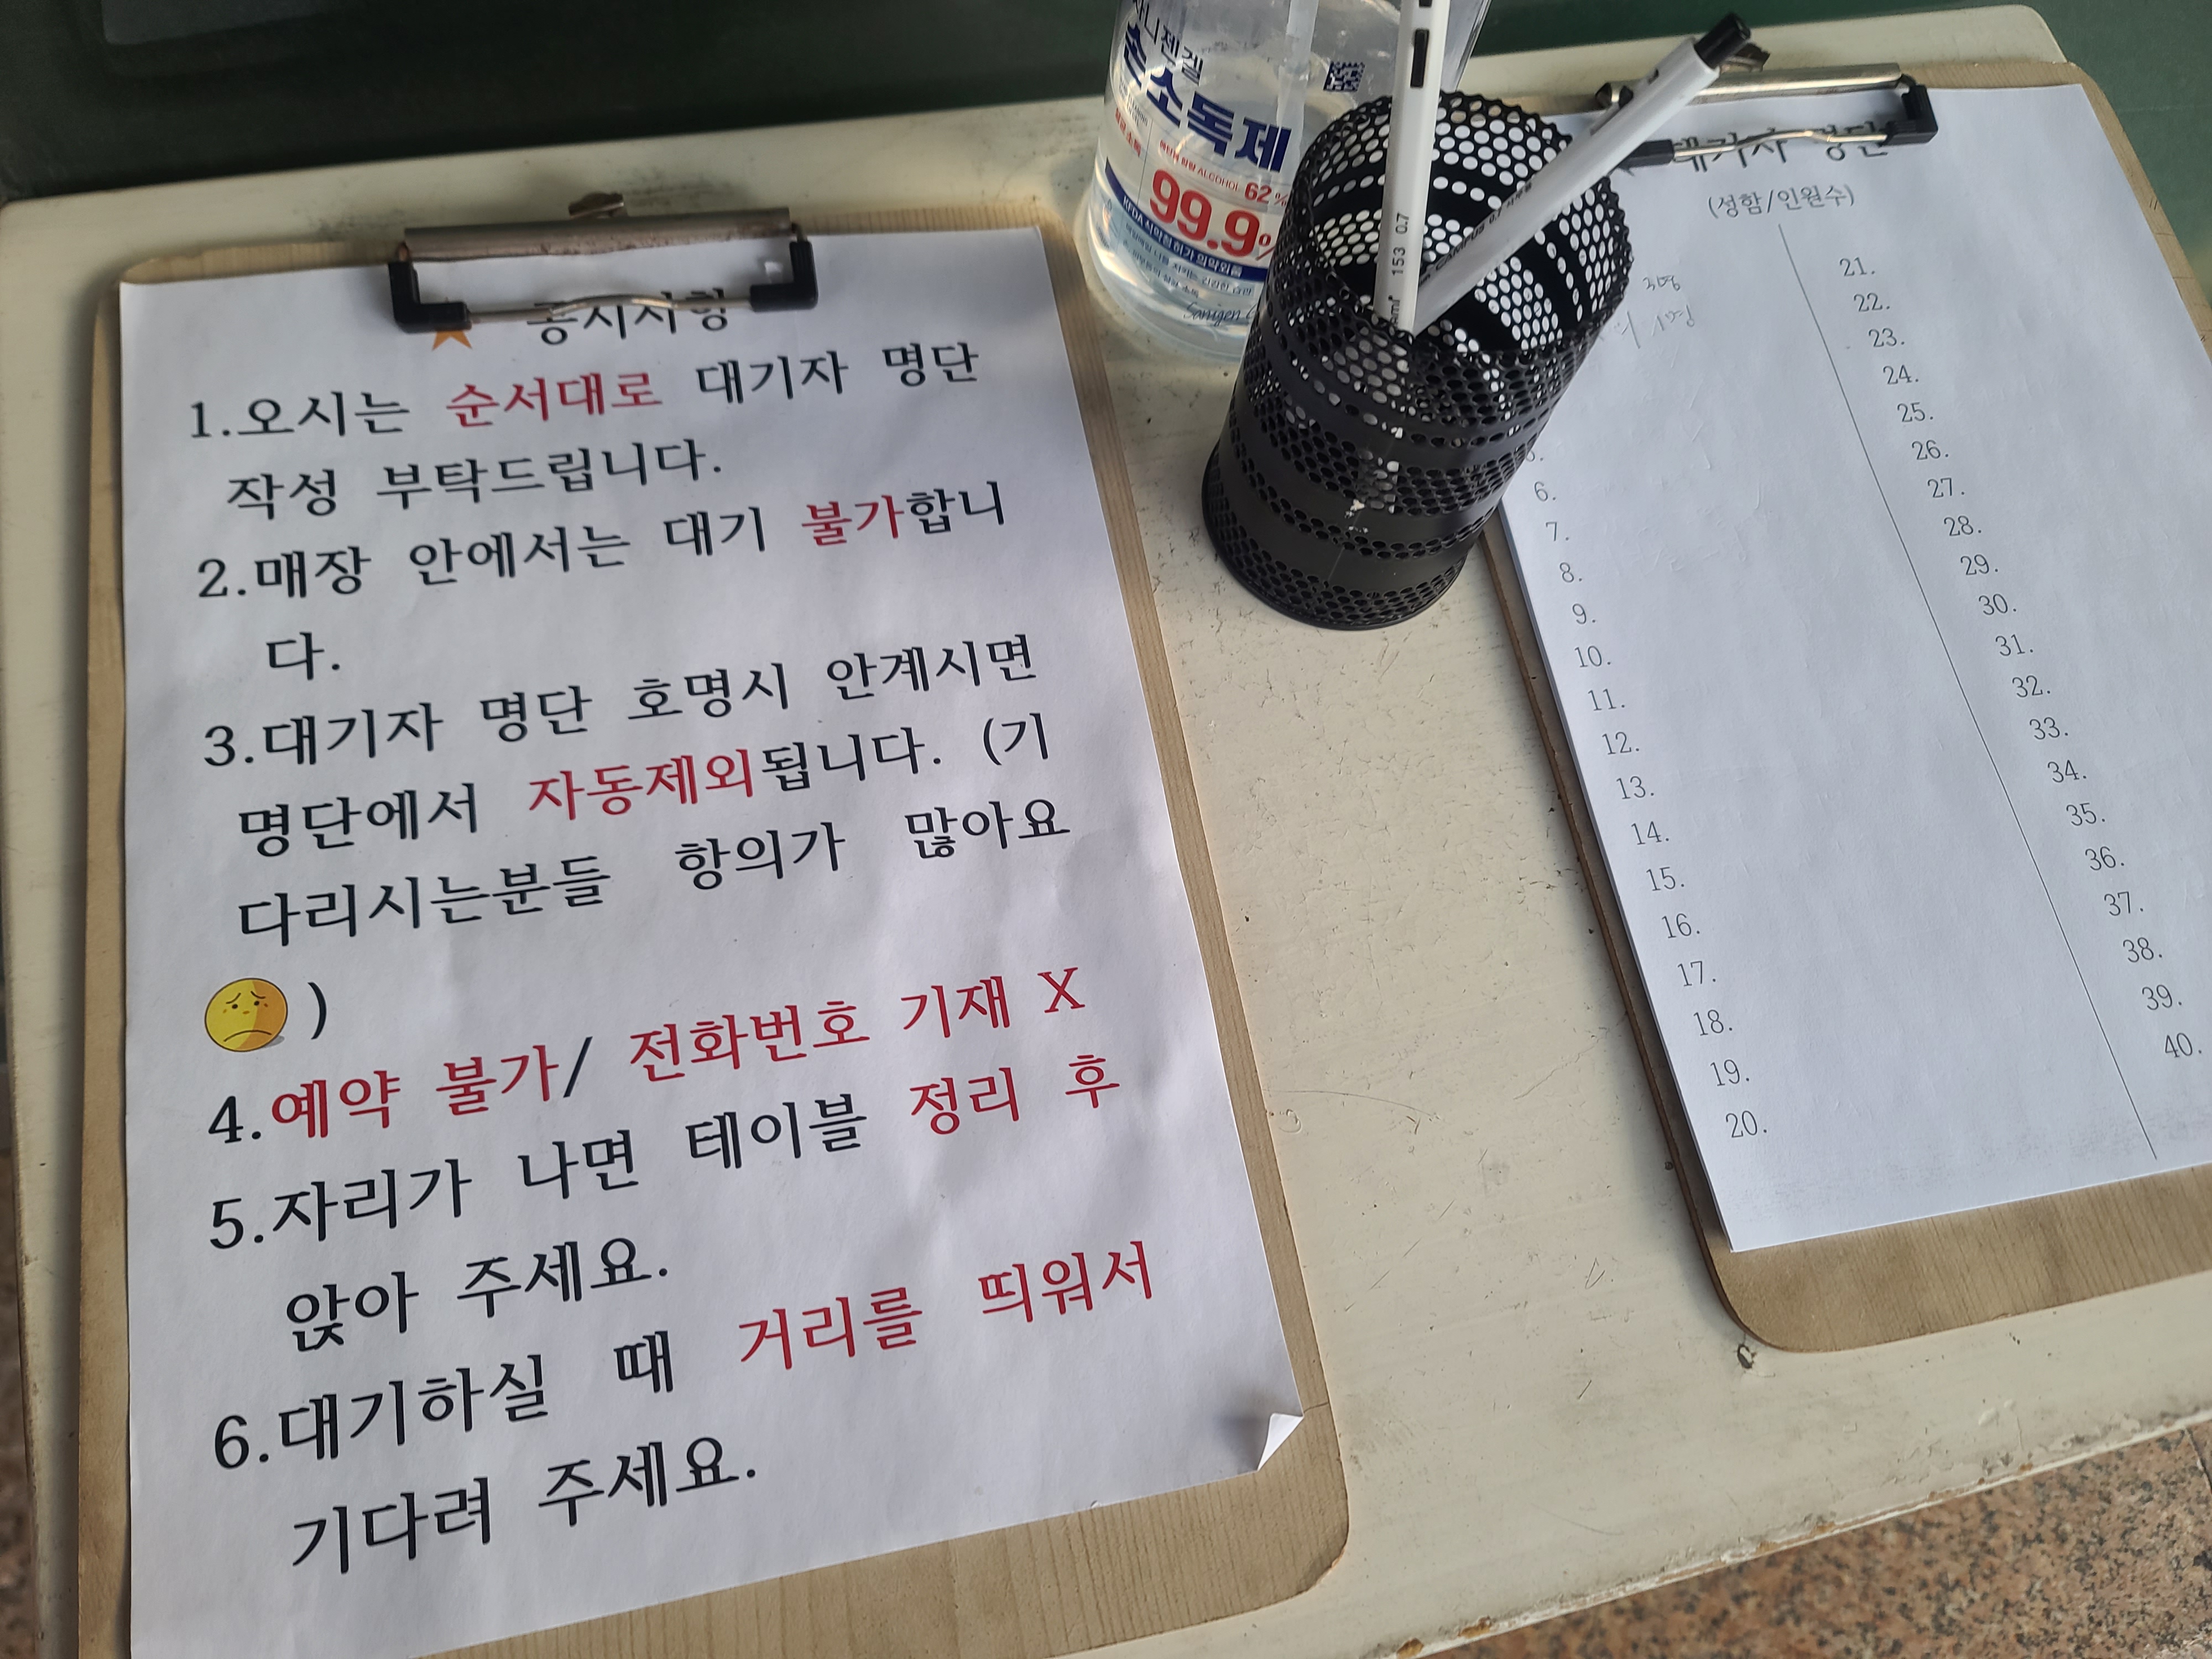 공지사항
1.오시는 순서대로 대기자 명단
작성 부탁드립니다.
2.매장 안에서는 대기 불가합니
다.
3.대기자 명단 호명시 안계시면
명단에서 자동제외됩니다. (기
다리시는분들 항의가 많아요
)
4.예약 불가/ 전화번호 기재 X
5.자리가 나면 테이블 정리 후
앉아 주세요.
6.대기하실 때 거리를 띄워서
기다려 주세요.
새니젠겔
손소독제
ALCOHOL 62%
99.9%
KFDA 식약청 허가 의약외품
153 0.7
대기자 명단
(성함/인원수)
3명
1명
6.
7.
8.
9.
10.
11.
12.
13.
14.
15.
16.
17.
18.
19.
20.
21.
22.
23.
24.
25.
26.
27.
28.
29.
30.
31.
32.
33.
34.
35.
36.
37.
38.
39.
40.